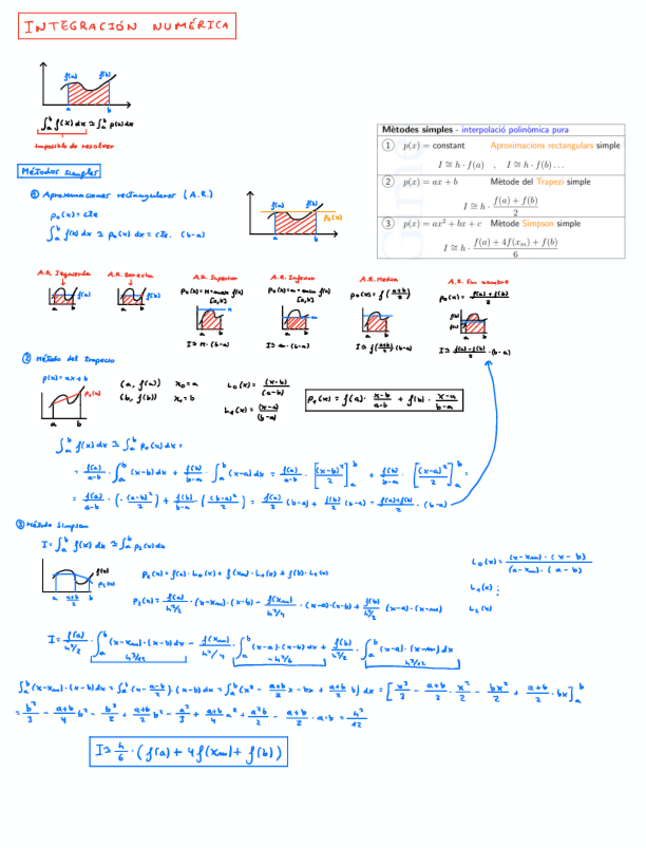 INTEGRACIÓN NUMÉRICA
f(a) f(b)
a b
∫ₐᵇ f(x) dx ≃ ∫ₐᵇ p(x) dx
Imposible de resolver
Mètodes simples - interpolació polinòmica pura
1 p(x) = constant Aproximacions rectangulars simple
I ≅ h · f(a) , I ≅ h · f(b) ...
2 p(x) = ax + b Mètode del Trapezi simple
I ≅ h · (f(a) + f(b))/2
3 p(x) = ax² + bx + c Mètode Simpson simple
I ≅ h · (f(a) + 4f(xₘ) + f(b))/6
Métodos simples
① Aproximaciones rectangulares (A.R.)
p₀(x) = cte
∫ₐᵇ f(x) dx ≃ p₀(x) dx = cte. (b-a)
f(a) f(b) p₀(x)
a b
A.R. Izquierda A.R. Derecha A.R. Superior A.R. Inferior A.R. Media A.R. Sin nombre
p₀(x) = M = max f(x) p₀(x) = m = min f(x) p₀(x) = f((a+b)/2) p₀(x) = (f(a)+f(b))/2
[a,b] [a,b]
f(a) f(b) M m f(b) f(a)
a b a b a b a b a b a b
I ≃ M·(b-a) I ≃ m·(b-a) I ≃ f((a+b)/2)·(b-a) I ≃ (f(a)-f(b))/2 ·(b-a)
② Método del trapecio
p(x) = ax + b
p₁(x)
a b
(a, f(a)) x₀ = a L₀(x) = (x-b)/(a-b)
(b, f(b)) x₁ = b L₁(x) = (x-a)/(b-a)
p₁(x) = f(a) · (x-b)/(a-b) + f(b) · (x-a)/(b-a)
∫ₐᵇ f(x) dx ≃ ∫ₐᵇ p₁(x) dx =
= f(a)/(a-b) · ∫ₐᵇ (x-b) dx + f(b)/(b-a) · ∫ₐᵇ (x-a) dx = f(a)/(a-b) · [(x-b)²/2]ₐᵇ + f(b)/(b-a) · [(x-a)²/2]ₐᵇ =
= f(a)/(a-b) · (-(a-b)²/2) + f(b)/(b-a) · ((b-a)²/2) = f(a)/2 (b-a) + f(b)/2 (b-a) = (f(a)+f(b))/2 · (b-a)
③ Método Simpson
I = ∫ₐᵇ f(x) dx ≃ ∫ₐᵇ p₂(x) dx
f(x) p₂(x)
a (a+b)/2 b
p₂(x) = f(a) · L₀(x) + f(xₘ) · L₁(x) + f(b) · L₂(x)
L₀(x) = ((x-xₘ) · (x-b))/((a-xₘ) · (a-b))
L₁(x) ⋮
L₂(x)
p₂(x) = f(a)/(h²/2) · (x-xₘ)·(x-b) - f(xₘ)/(h²/4) · (x-a)·(x-b) + f(b)/(h²/2) (x-a)·(x-xₘ)
I = f(a)/(h²/2) · ∫ₐᵇ (x-xₘ)·(x-b) dx - f(xₘ)/(h²/4) · ∫ₐᵇ (x-a)·(x-b) dx + f(b)/(h²/2) · ∫ₐᵇ (x-a)·(x-xₘ) dx
h³/12 -h³/6 h³/12
∫ₐᵇ (x-xₘ)·(x-b) dx = ∫ₐᵇ (x - (a-b)/2)·(x-b) dx = ∫ₐᵇ (x² - (a+b)/2 x - bx + (a+b)/2 b) dx = [x³/3 - (a+b)/2 · x²/2 - bx²/2 + (a+b)/2 · bx]ₐᵇ
= b³/3 - (a+b)/4 b² - b³/2 + (a+b)/2 b² - a³/3 + (a+b)/4 a² + a²b/2 - (a+b)/2 · a·b = h³/12
I ≃ h/6 · (f(a) + 4f(xₘ) + f(b))